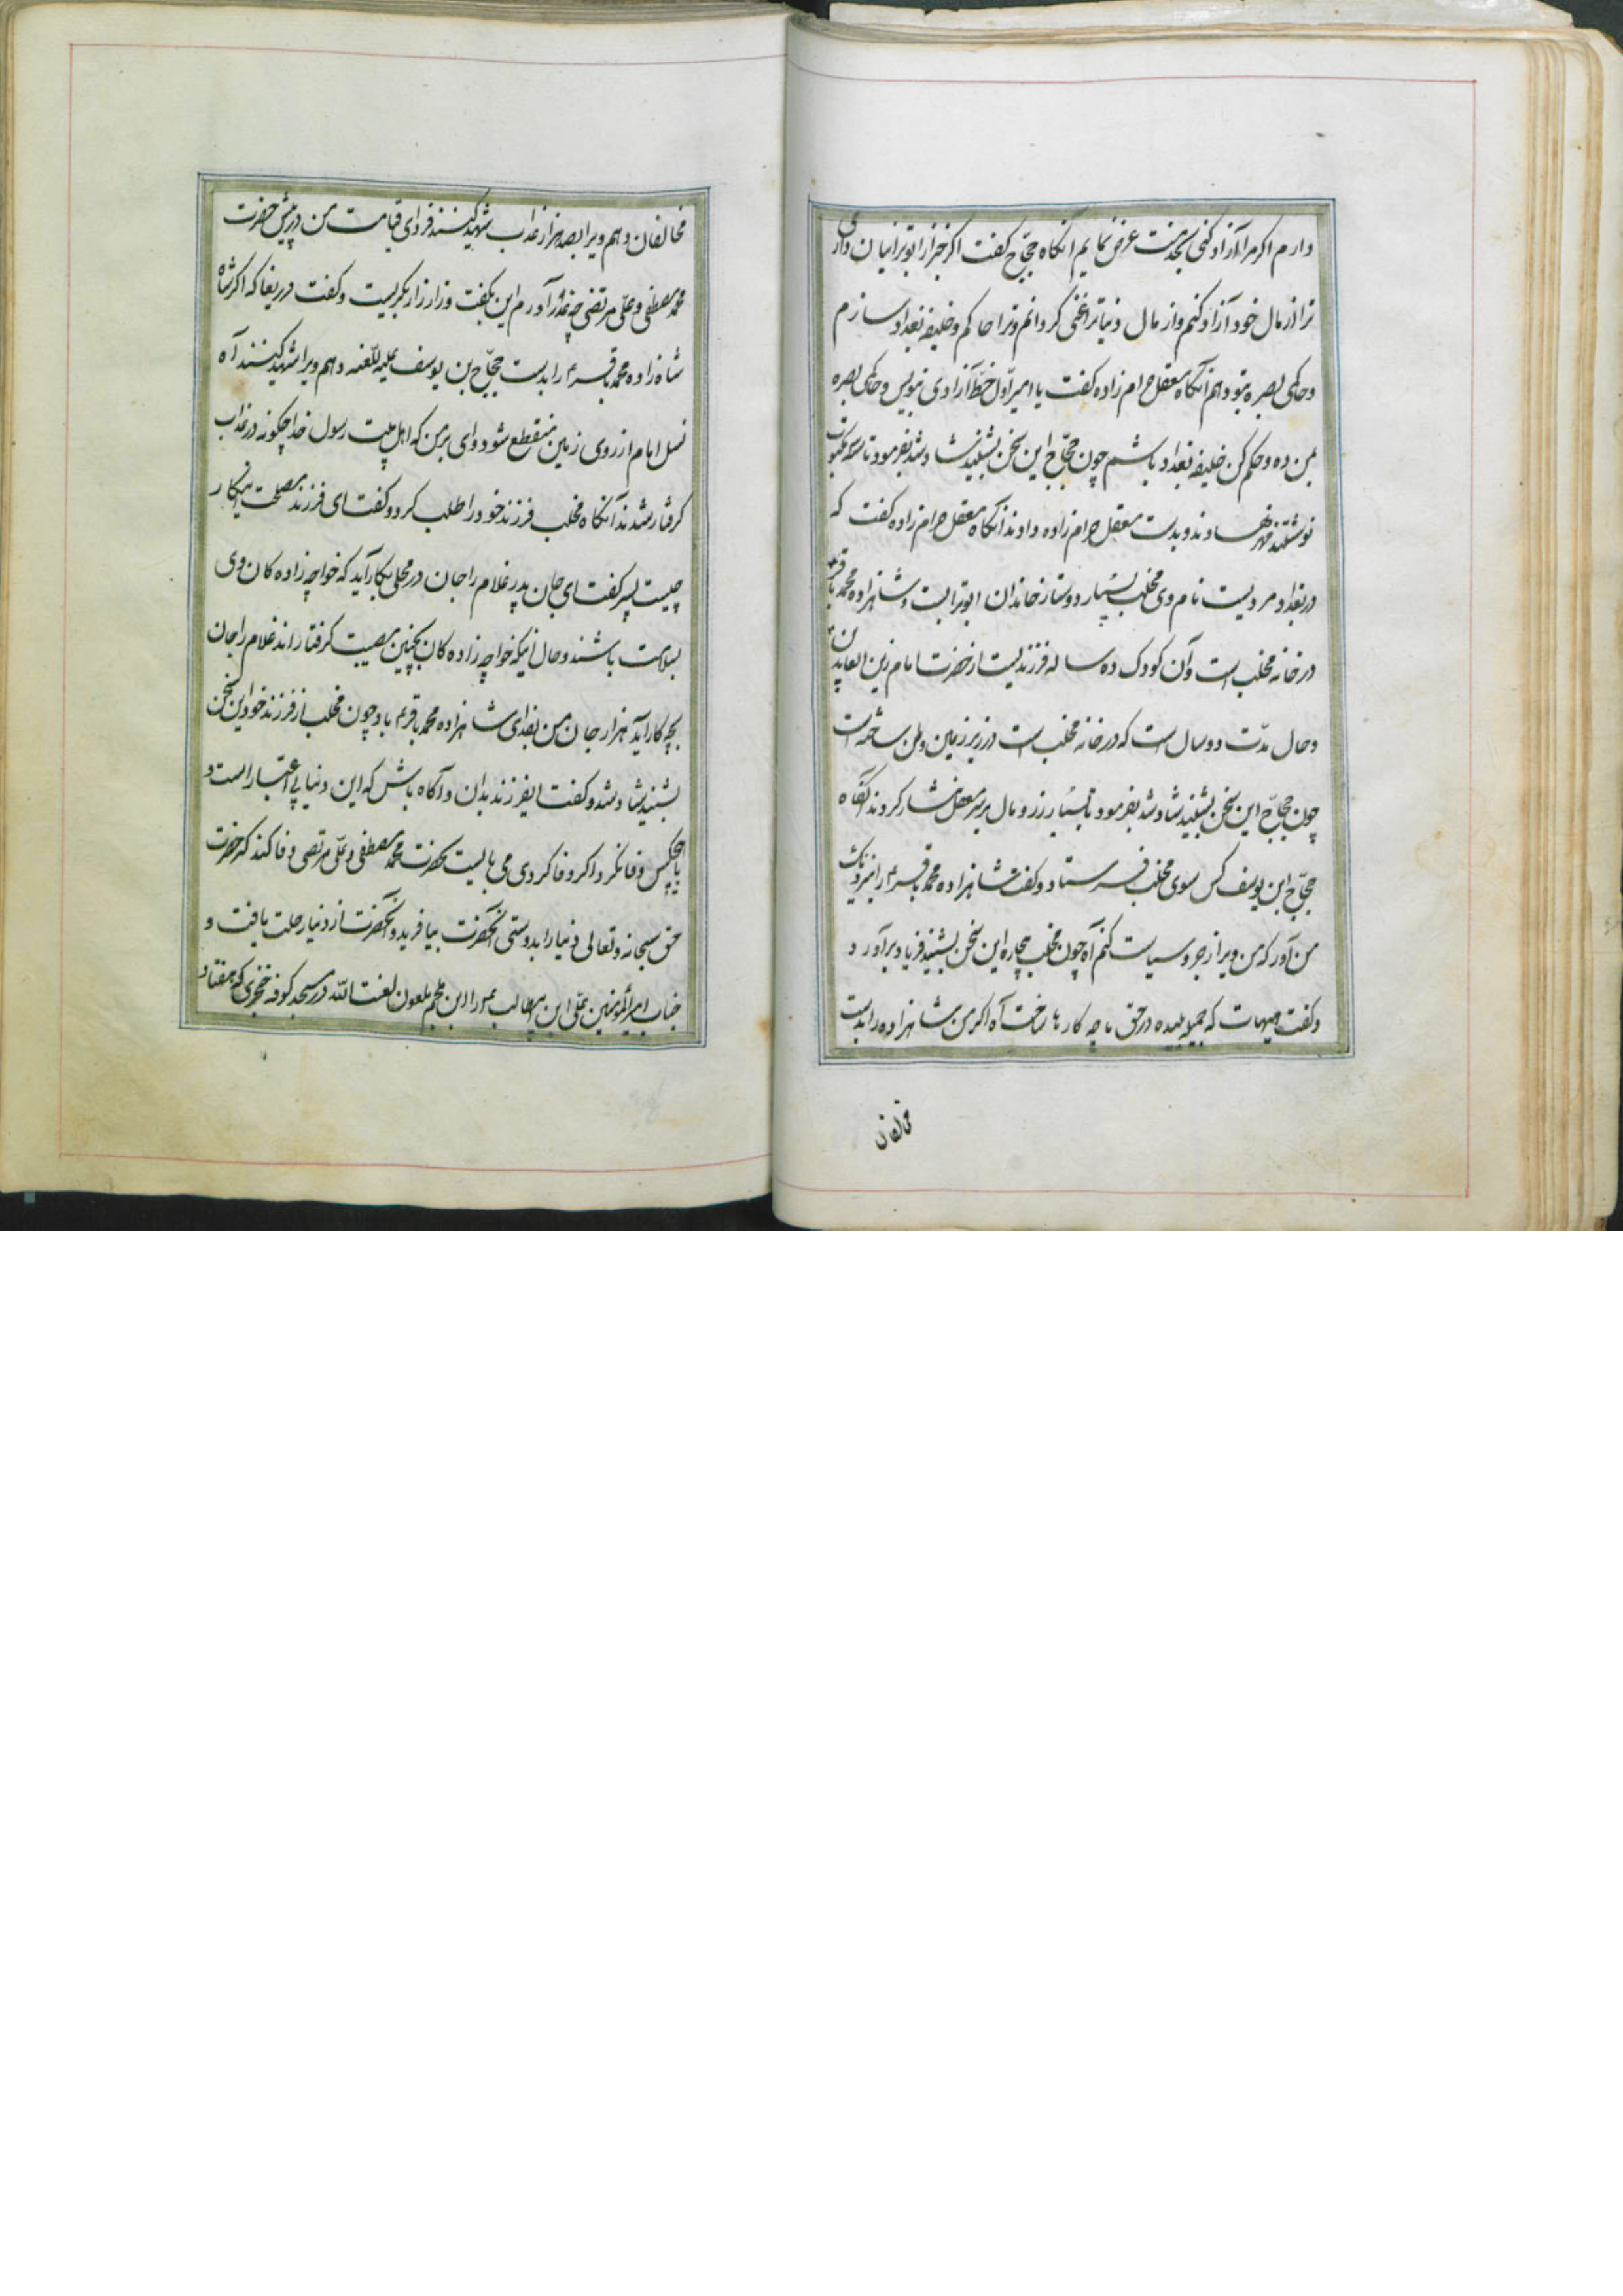 دارم اکر مرا آزاد کنی بخدمتت عرض نمایم آنکاه حجّاج کفت اکر خبر از ابوترابیان داری
ترا از مال خود آزاد کنم و از مال دنیا ترا غنی کردانم و ترا حاکم و خلیفه بغداد سازم
و حاکمی بصره بتو دهم آنکاه معقل حرام زاده کفت یا امیر اوّل خطّ آزادی بنویس و حاکمی بصره
بمن ده و حکم کن خلیفه بغداد باشم چون حجّاج این سخن بشنید شاد شد بفرمود تا
نوشتند و مهر نهادند و بدست معقل حرام زاده دادند آنکاه معقل حرام زاده کفت که
در بغداد مردیست نام وی مخلب بسیار دوستار خاندان ابوترابست و شاهزاده محمد باقر
در خانه مخلب است و آن کودک ده ساله فرزندیست از حضرت امام زین العابدین
و حال مدّت دو سال است که در خانه مخلب است در زیر زمین وطن ساخته است
چون حجّاج این سخن بشنید شاد شد بفرمود تا بسیار زر و مال بر سر معقل نثار کردند آنکاه
حجّاج ابن یوسف کس سوی مخلب فرستاد و کفت شاهزاده محمد باقر را بنزدیک
من آور که من ویرا زجر و سیاست کنم آه چون مخلب بیچاره این سخن بشنید فریاد برآورد
و کفت هیهات که جمیله پلیده در حق ما چه کارها ساخت آه اکر من شاهزاده را بدست
مخالفان
مخالفان دهم ویرا بصد هزار عذاب شهید کنند فردای قیامت من در پیش حضرت
محمد مصطفی و علی مرتضی چه عذر آورم این بکفت و زار زار بکریست و کفت دریغا که اکر
شاه زاده محمد باقر را بدست حجّاج بن یوسف علیه اللّعنه دهم ویرا شهید کنند آه
نسل امام از روی زمین منقطع شود وای بر من که اهل بیت رسول خدا چکونه در عذاب
کرفتار شدند آنکاه مخلب فرزند خود را طلب کرد و کفت ای فرزند مصلحت اینکار
چیست پسر کفت ای جان پدر غلام را جان در محلی بکار آید که خواجه زاده کان وی
بسلامت باشند و حال اینکه خواجه زاده کان بچنین مصیبت کرفتارند غلام را جان
بچه کار آید هزار جان من بفدای شاهزاده محمد باقر باد چون مخلب از فرزند خود این سخن
بشنید شاد شد و کفت ایفرزند بدان و آکاه باش که این دنیا بی اعتبار است و
با هیچکس وفا نکرد اکر وفا کردی می بایست بحضرت محمد مصطفی و علی مرتضی وفا کند که حضرت
حق سبحانه و تعالی دنیا را بدوستی آنحضرت بیافرید و آنحضرت از دنیا رحلت یافت و
جناب امیرالمؤمنین علی ابن ابیطالب را ابن ملجم ملعون لعنت الله در مسجد کوفه خنجری که هفتاد